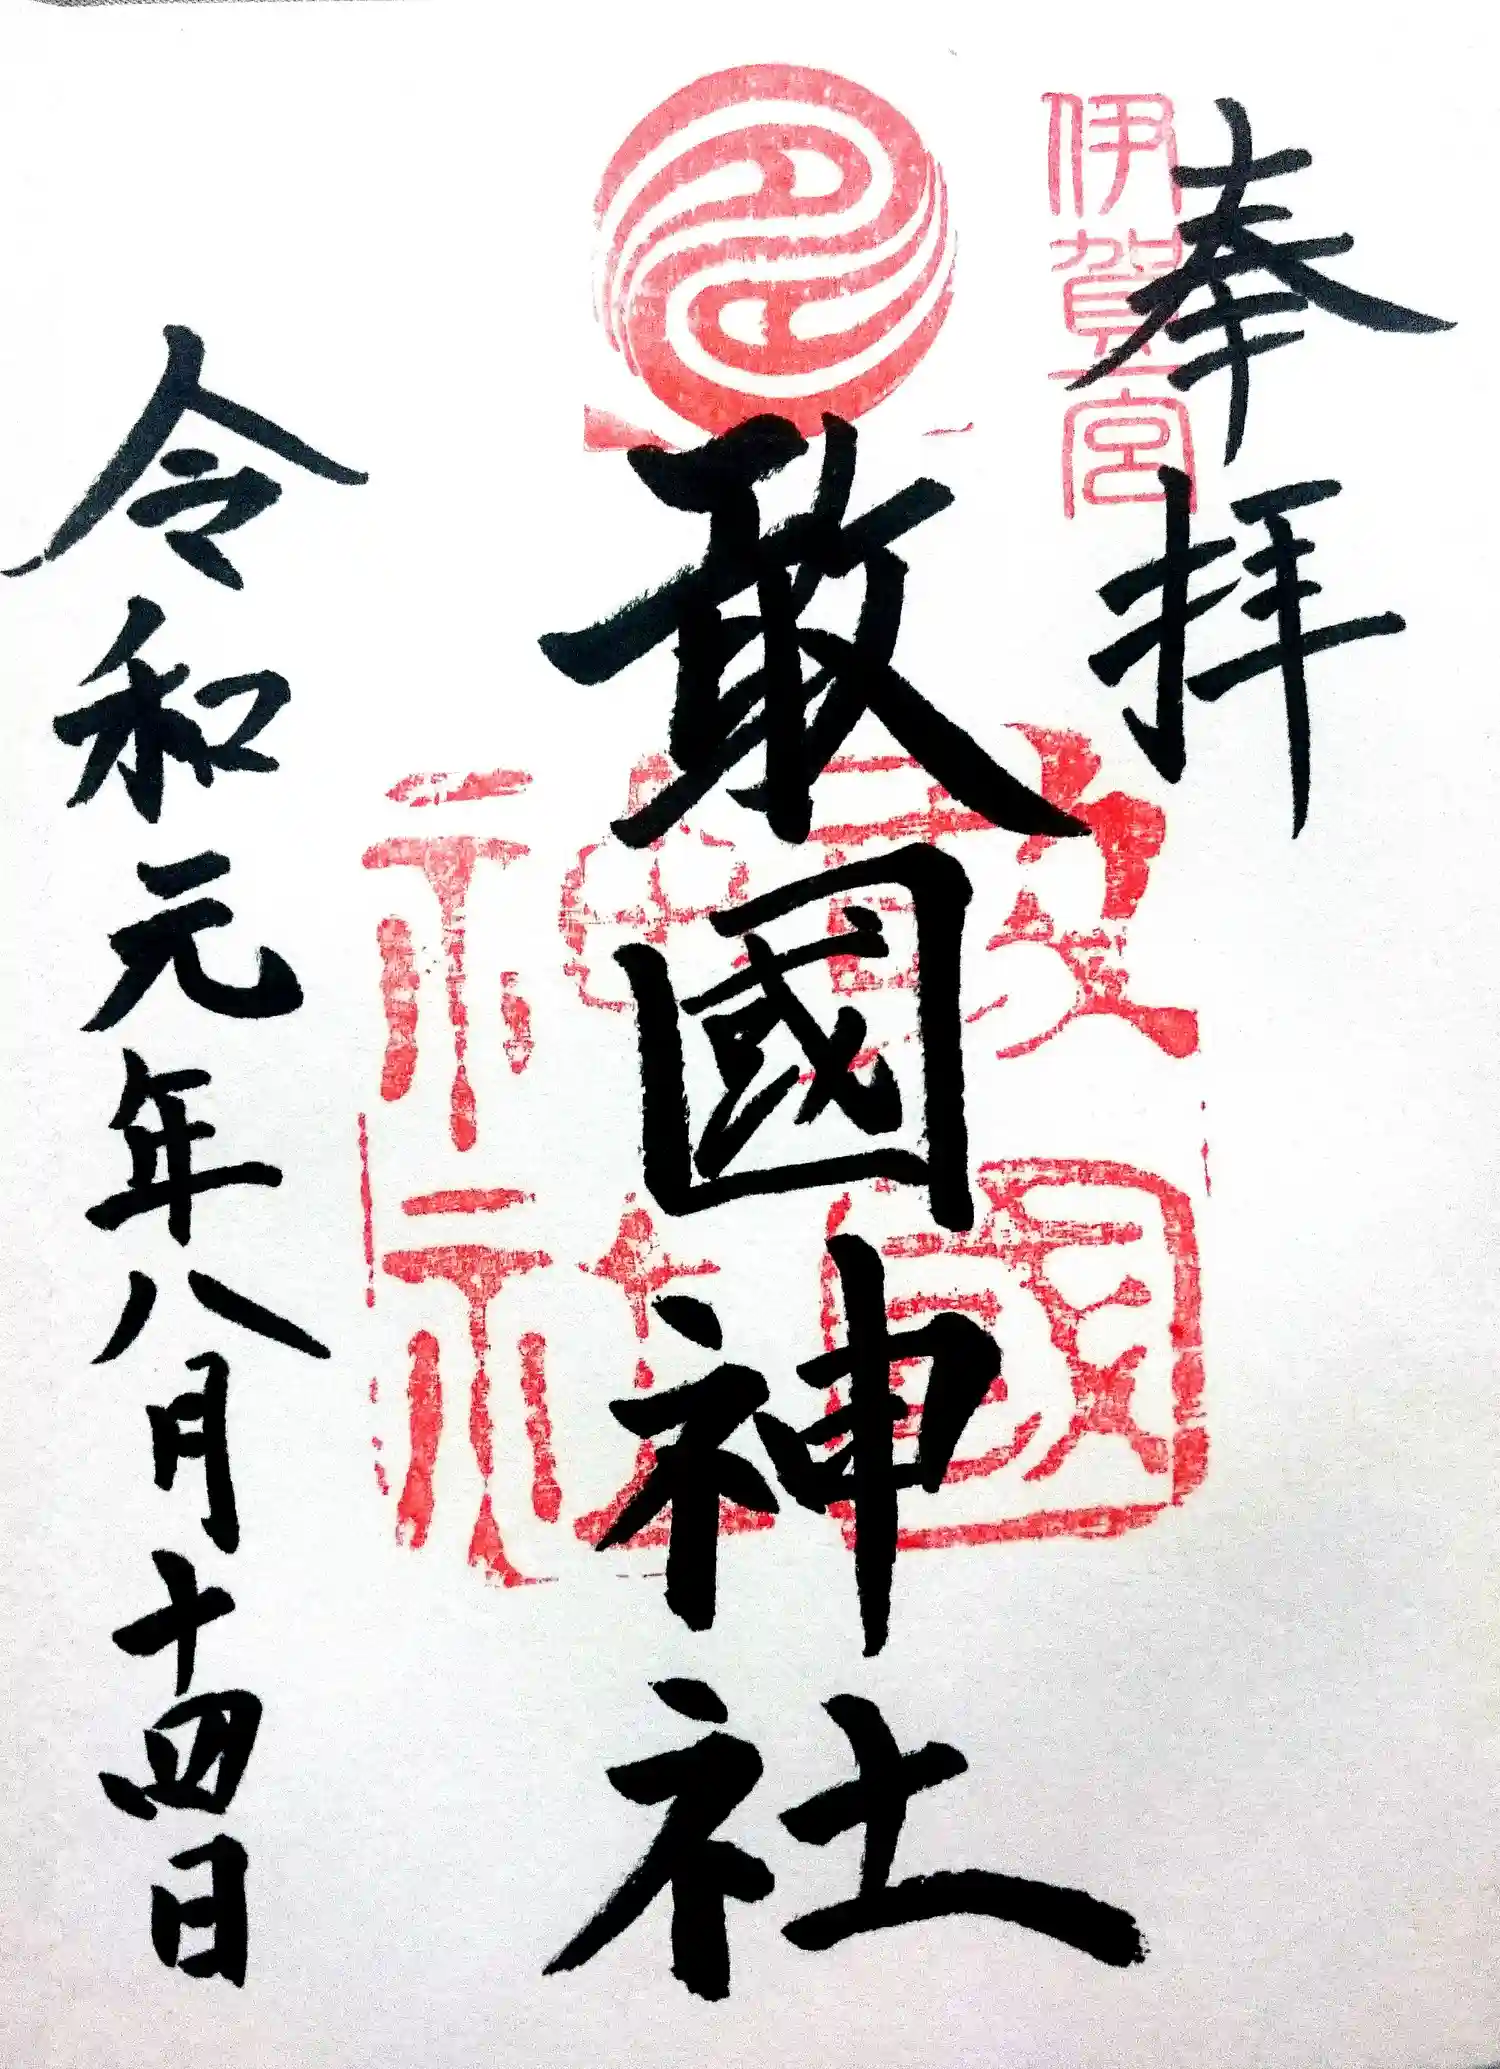 奉拝
伊賀一宮
敢國神社
敢國神社
令和元年八月十四日